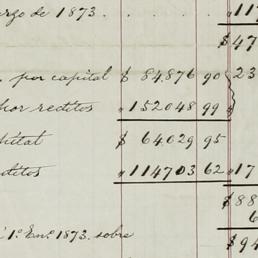 argo de 1873. . " 117
$ 47
por capital $ 84,876 90 23
por reditos " 152048 99 "
capital $ 64,029 95
reditos " 114703 62 " 17
$ 88
6
1º Enº 1873. sobre
$ 94